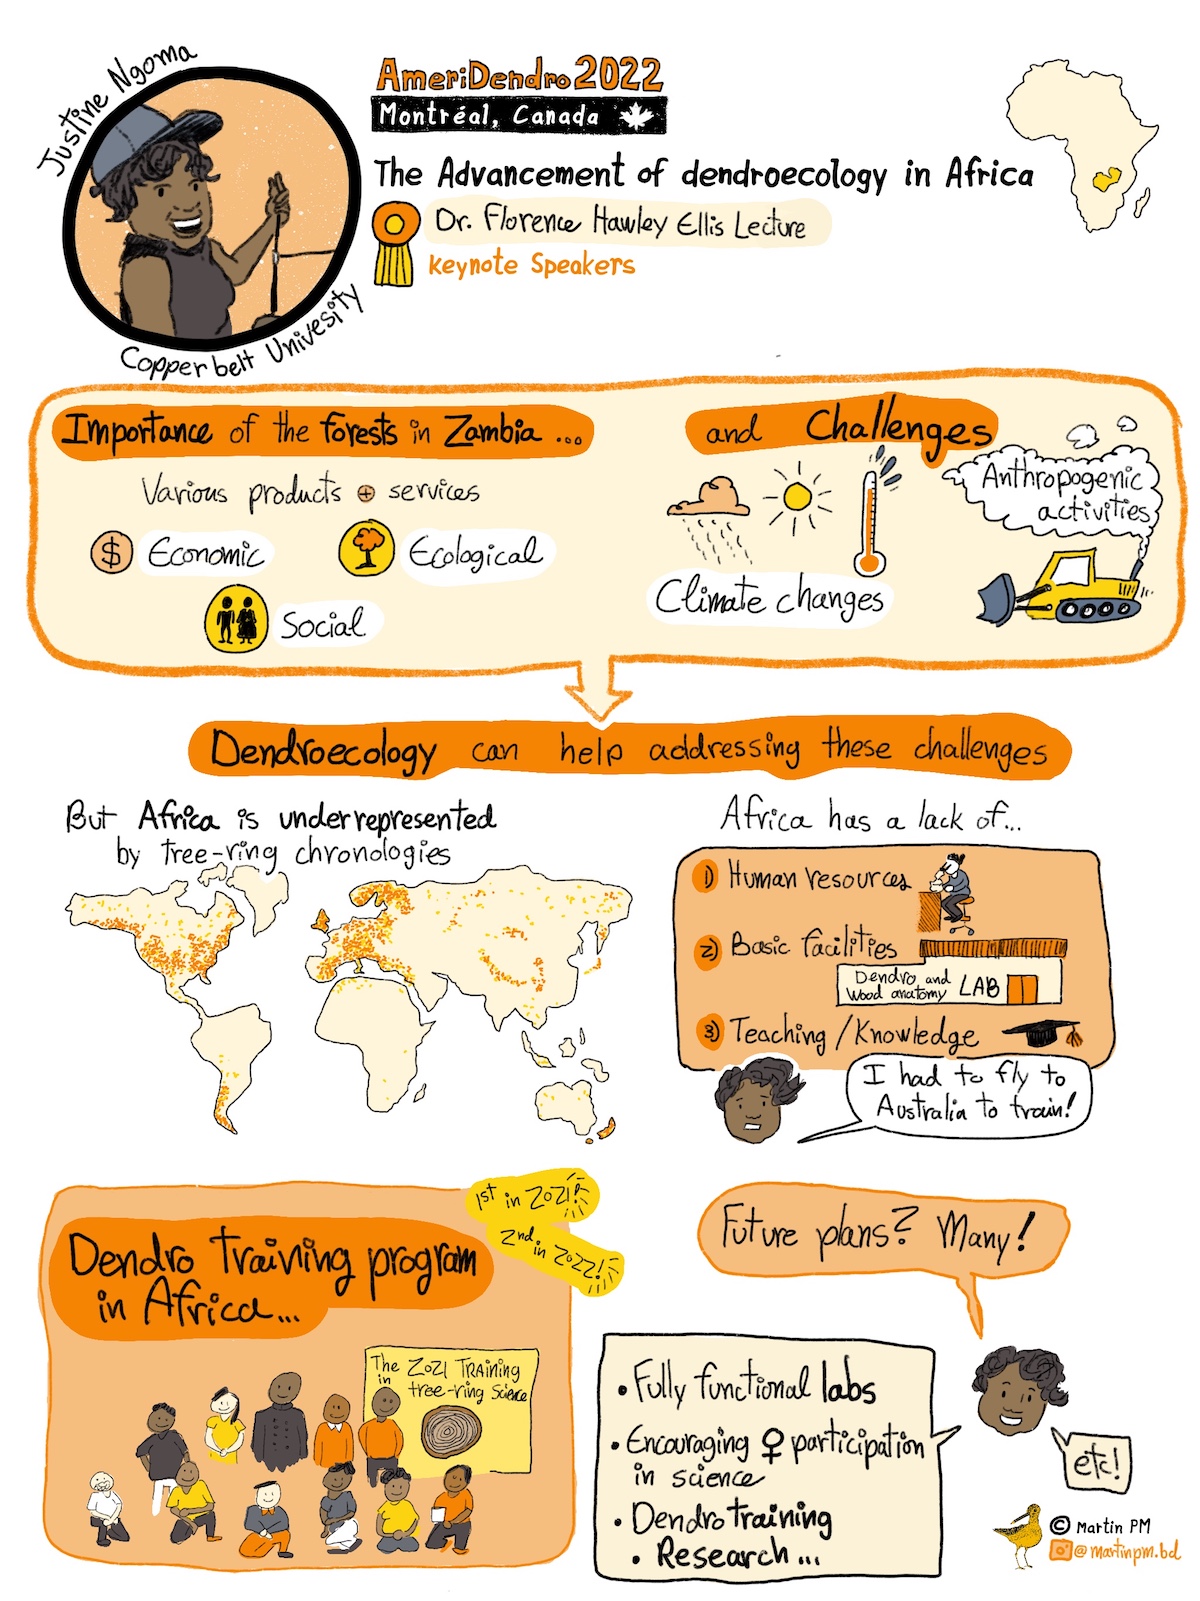 Justine Ngoma
Copperbelt Univesity
AmeriDendro2022
Montréal, Canada
The Advancement of dendroecology in Africa
Dr. Florence Hawley Ellis Lecture
Keynote Speakers
Importance of the forests in Zambia ...
Various products + services
$ Economic
Ecological
Social
and Challenges
Climate changes
Anthropogenic
activities
Dendroecology can help addressing these challenges
But Africa is underrepresented
by tree-ring chronologies
Africa has a lack of...
1) Human resources
2) Basic facilities
Dendro and
Wood anatomy LAB
3) Teaching/Knowledge
I had to fly to
Australia to train!
1st in 2021!
2nd in 2022!
Dendro training program
in Africa...
The 2021 TRAINING
in
tree-ring Science
Future plans? Many!
• Fully functional labs
• Encouraging ♀ participation
in science
• Dendro training
• Research...
etc!
© Martin PM
@martinpm.bd